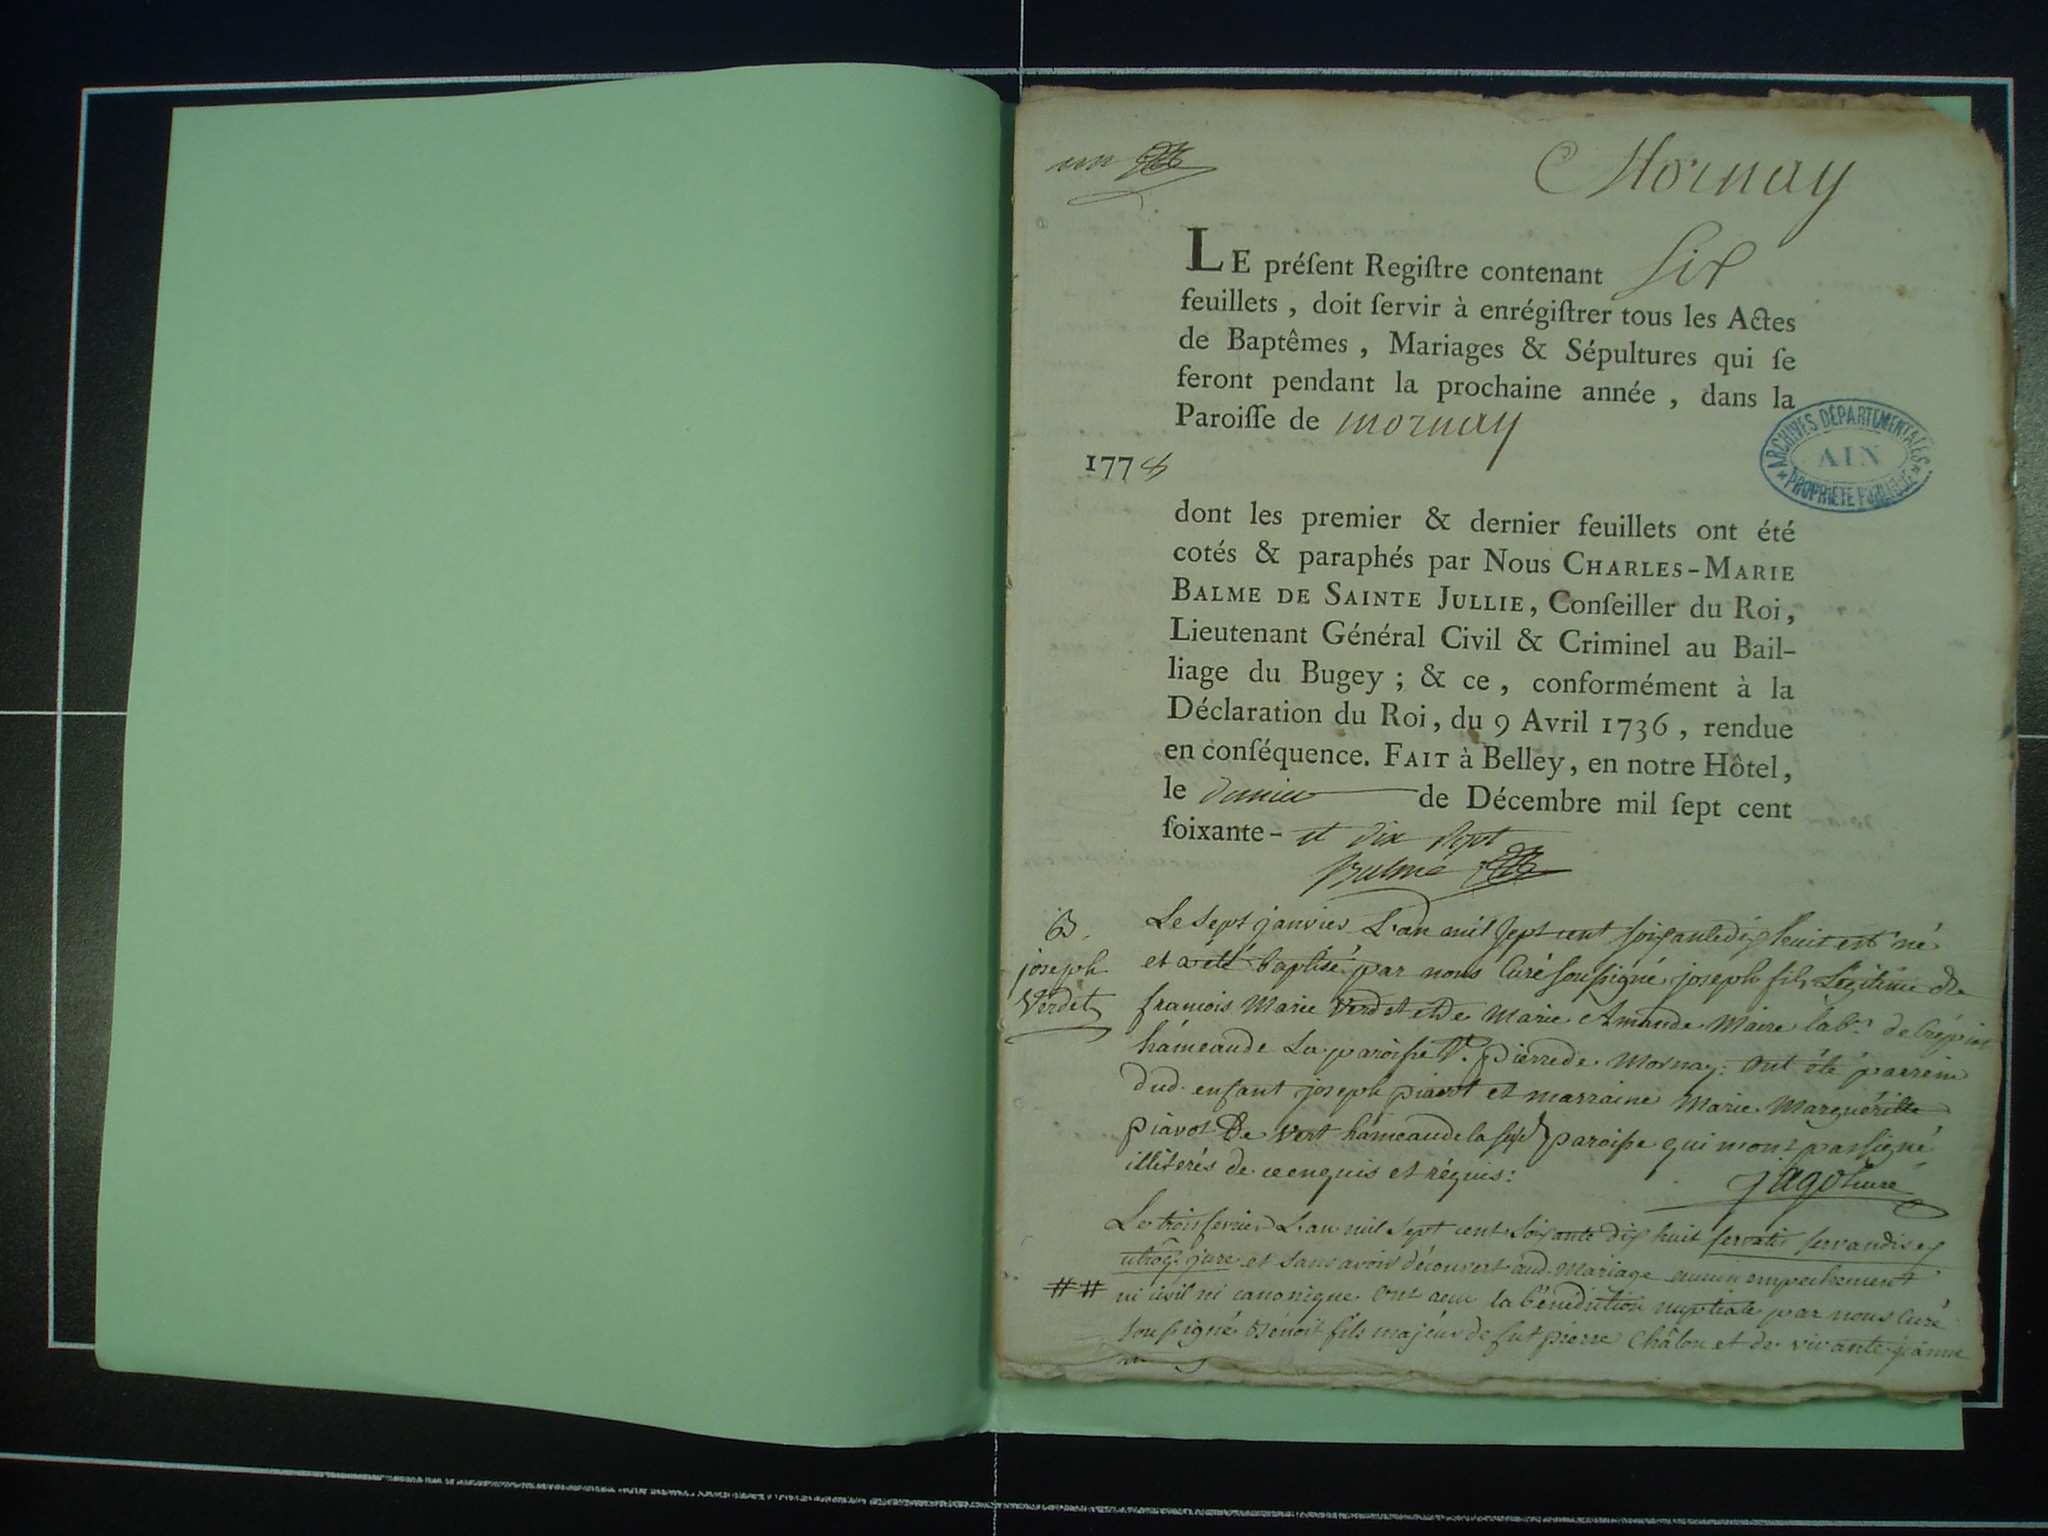 un
Mornay
LE préſent Regiſtre contenant Six
feuillets, doit ſervir à enrégiſtrer tous les Actes
de Baptêmes, Mariages & Sépultures qui ſe
feront pendant la prochaine année, dans la
Paroiſſe de mornay
ARCHIVES DÉPARTEMENTALES
AIN
PROPRIÉTÉ PUBLIQUE
1778
dont les premier & dernier feuillets ont été
cotés & paraphés par Nous CHARLES-MARIE
BALME DE SAINTE JULLIE, Conſeiller du Roi,
Lieutenant Général Civil & Criminel au Bail-
liage du Bugey; & ce, conformément à la
Déclaration du Roi, du 9 Avril 1736, rendue
en conſéquence. FAIT à Belley, en notre Hôtel,
le dernier de Décembre mil ſept cent
ſoixante- et dix sept
Balme
B.
joseph
Verdet
Le sept janvier L'an mil sept cent soixante dix huit est né
et a été baptisé par nous Curé soussigné joseph fils Légitime de
francois Marie Verdet et de Marie Amande Maire lab.r de Crépiat
hámeau de La paroisse St. pierre de Mornay: ont été parrein
dud. enfant joseph piavot et marraine Marie Marguéritte
piavot De Vert hámeau de la paroisse qui n'ont pas signé
illitérés de ce enquis et réquis:
jagot curé
Le trois fevrier L'an mil sept cent soixante dix huit servatis servandis ex
utroq. jure et sans avoir découvert aud. Mariage aucun empechement
## ni civil ni canonique ont reçu la bénédiction nuptiale par nous Curé
soussigné Benoit fils majeur de fut pierre Châlon et de vivante jeanne